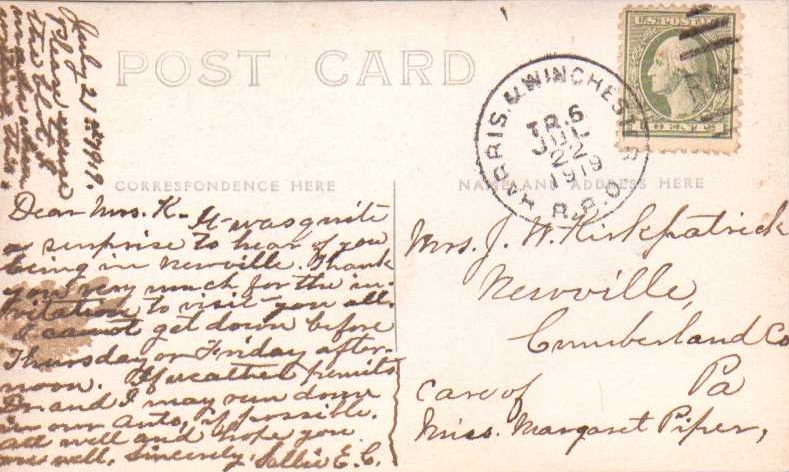 July 21st 1919.
Please excuse
this blot
POST CARD
U.S. POSTAGE
1 CENT 1
HARRIS. & WINCHESTER R.P.O.
TR.6
JUL
22
1919
CORRESPONDENCE HERE
NAME AND ADDRESS HERE
Dear Mrs. K— It was quite
a surprise to hear of you
being in Newville. Thank
you very much for the in-
vitation to visit you all.
I cannot get down before
Thursday or Friday after-
noon. If weather permits
Dr. and I may run down
in our auto, if possible.
All well and hope you
are well, Sincerely, Sallie E. C.
Mrs. J. W. Kirkpatrick
Newville,
Cumberland Co
Pa
Care of
Miss. Margaret Piper,